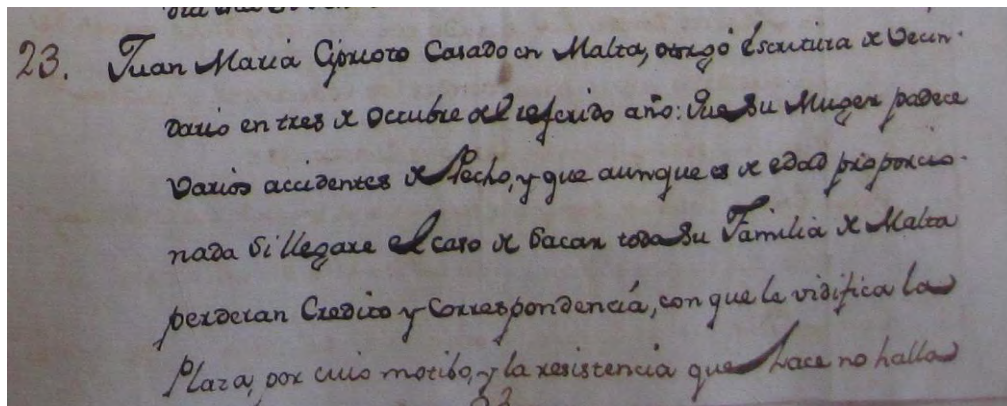 23. Juan Maria Ciprioto Casado en Malta, otorgó Escritura de Vecin-
dario en tres de Octubre del referido año: Que Su Muger padece
Varios accidentes de Pecho, y que aunque es de edad proporcio-
nada Si llegare el caso de Sacar toda Su Familia de Malta
perderan Credito y Correspondencia, con que le vivifica la
Plaza, por cuio motibo, y la resistencia que hace no halla